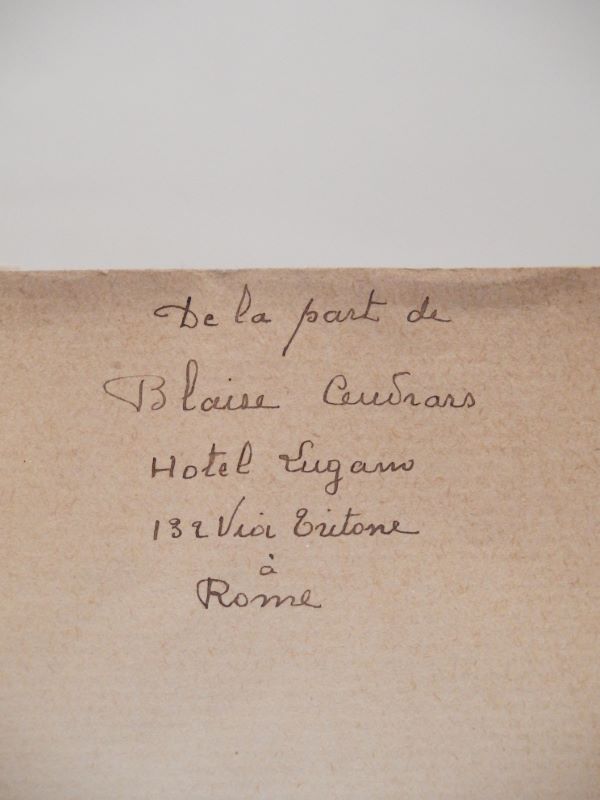 De la part de
Blaise Cendrars
Hotel Lugano
132 Via Tritone
à
Rome